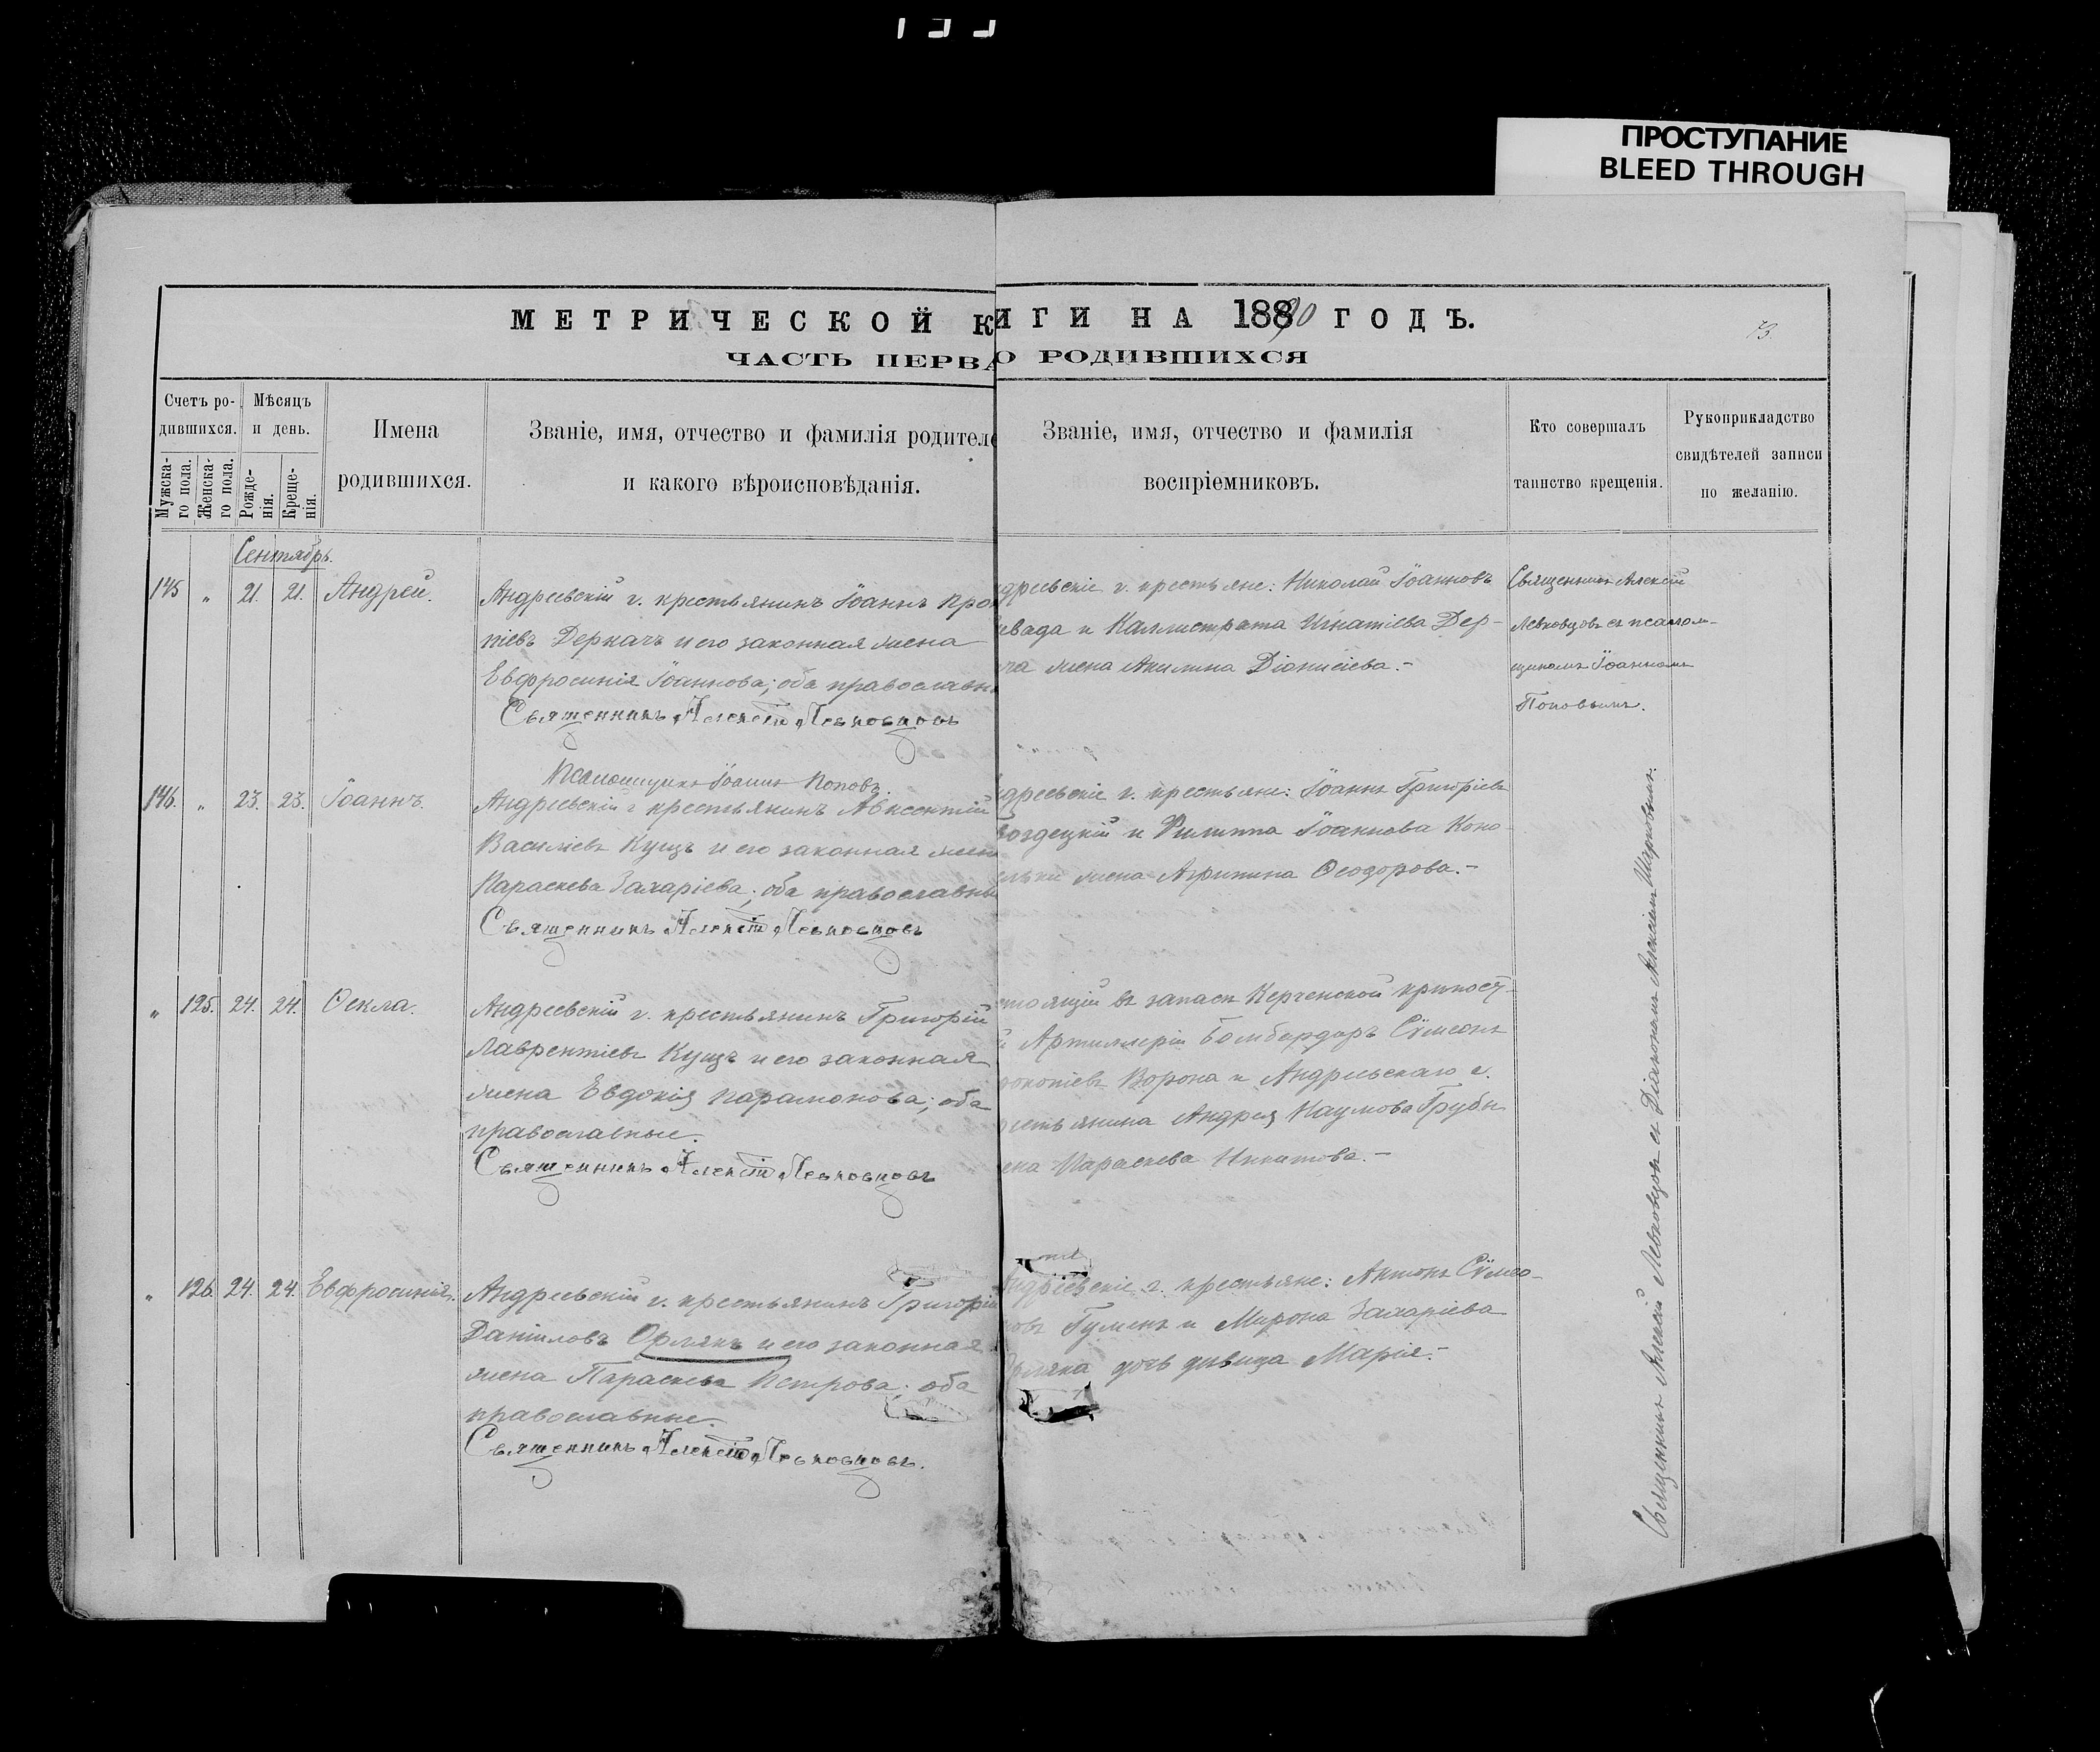 ПРОСТУПАНИЕ
BLEED THROUGH
МЕТРИЧЕСКОЙ К
ИГИ НА 18890 ГОДЪ.
73
ЧАСТЬ ПЕРВА
О РОДИВШИХСЯ
Счетъ ро-
дившихся.
Мужска-
го пола.
Женска-
го пола.
Мѣсяцъ
и день.
Рожде-
нія.
Креще-
нія.
Имена
родившихся.
Званіе, имя, отчество и фамилія родителе
и какого вѣроисповѣданія.
Званіе, имя, отчество и фамилія
воспріемниковъ.
Кто совершалъ
таинство крещенія.
Рукоприкладство
свидѣтелей записи
по желанію.
Сентябрь.
145 " 21. 21. Андрей.
Андреевскій г. крестьянинъ Іоаннъ Про
піевъ Деркачъ и его законная жена
Евфросинія Іоаннова; оба православн
Священникъ Алексій Левковцовъ
Псаломщикъ Іоаннъ Поповъ.
дреевскіе г. крестьяне: Николай Іоанновъ
евада и Каллистрата Игнатіева Дер-
ча жена Акилина Діонисіева.-
Священникъ Алексій
Левковцовъ съ псалом-
щикомъ Іоанномъ
Поповымъ.
146. " 23. 23. Іоаннъ.
Андреевскій г крестьянинъ Авксентій
Василіевъ Кущъ и его законная жен
Параскева Захаріева; оба православны
Священникъ Алексій Левковцовъ
дреевскіе г. крестьяне: Іоаннъ Григоріевъ
воздецкій и Филиппа Іоаннова Коно-
ельки жена Агрипина Ѳеодорова.-
" 125. 24. 24. Ѳекла.
Андреевскій г. крестьянинъ Григорій
Лаврентіевъ Кущъ и его законная
жена Евдокія Парамонова; оба
православные.
Священникъ Алексій Левковцовъ
стоящій въ запасѣ Керченской крѣпост-
й Артиллеріи Бомбардиръ Сѵмеонъ
рокопіевъ Ворона и Андреевскаго г.
рестьянина Андрея Наумова Грубы
ена Параскева Никитова.-
" 126. 24. 24. Евфросинія.
Андреевскій г. крестьянинъ Григорій
Даніиловъ Орлякъ и его законная
жена Параскева Петрова; оба
православные.
Священникъ Алексій Левковцовъ.
Андреевскіе г. крестьяне: Антонъ Сѵмео-
новъ Гуменъ и Мирона Захаріева
Орляка дочь дѣвица Марія.-
Священникъ Алексій Левковцовъ съ Діакономъ Алексіемъ Шарковымъ.